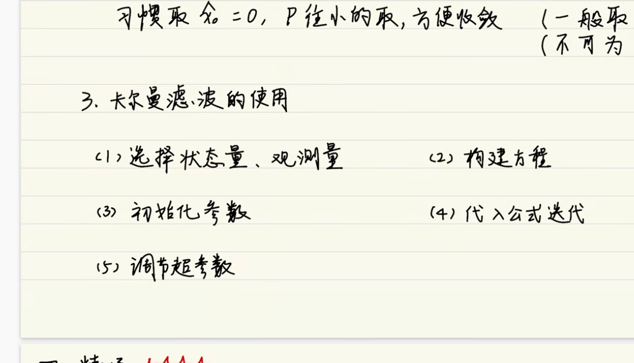 习惯取 x̂₀ = 0, P 往小的取, 方便收敛 (一般取
(不可为
3. 卡尔曼滤波的使用
(1) 选择状态量、观测量 (2) 构建方程
(3) 初始化参数 (4) 代入公式迭代
(5) 调节超参数